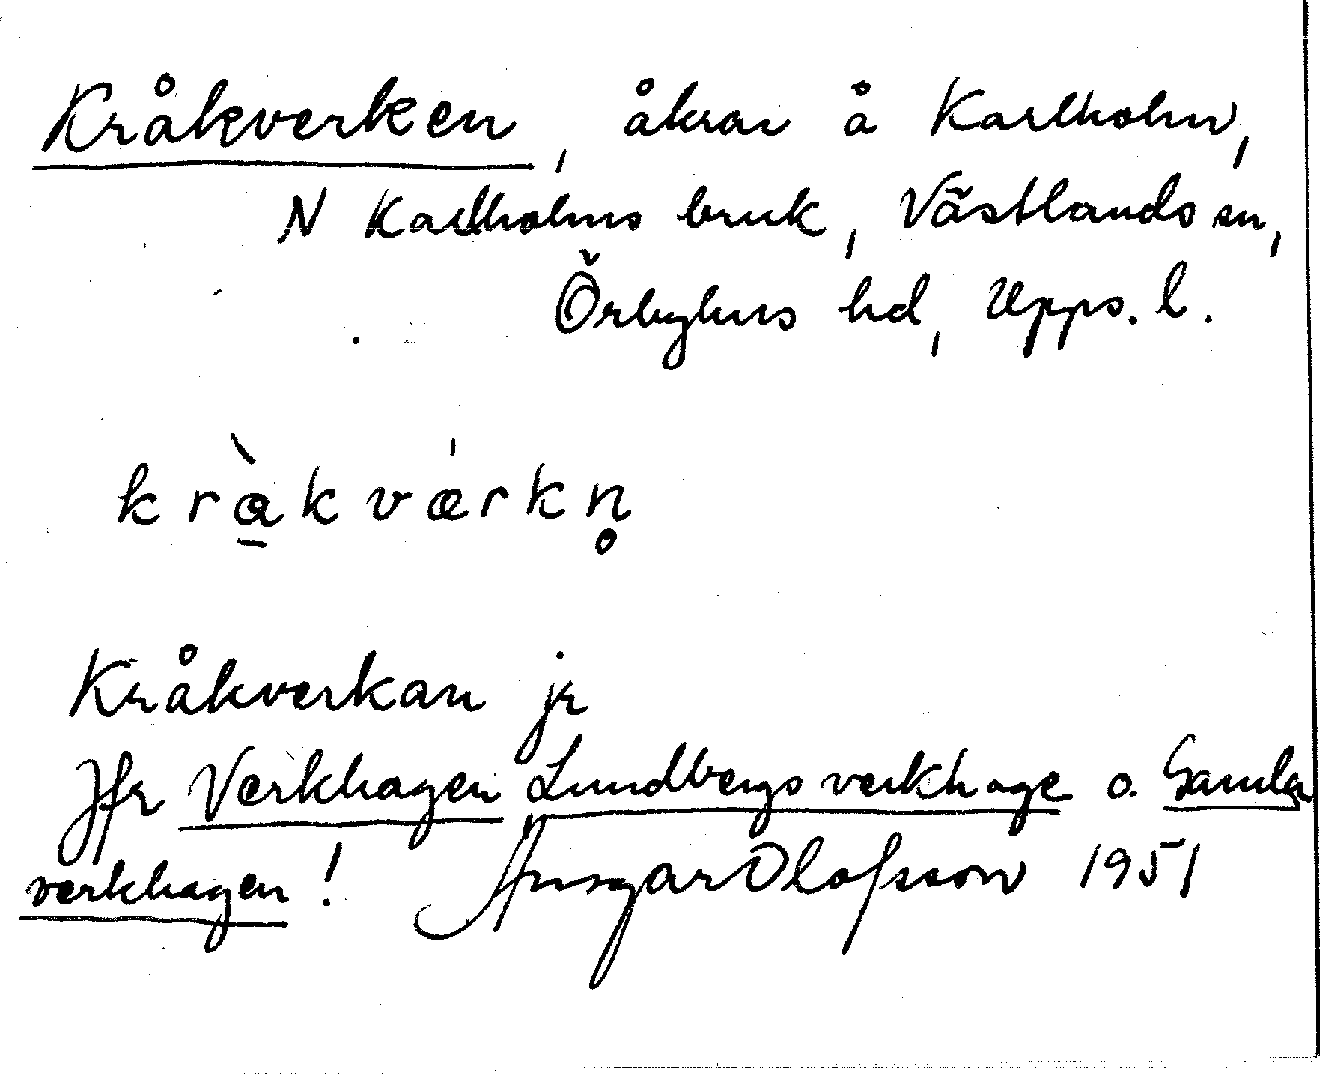 Kråkverken, åkrar å Karlholm,
N Karlholms bruk, Västlands sn,
Örbyhus hd, Upps. l.
kràkværkn̥
Kråkverkan jr
Jfr Verkhagen Lundbergs verkhage o. Gamla
verkhagen! Ansgar Olofsson 1951